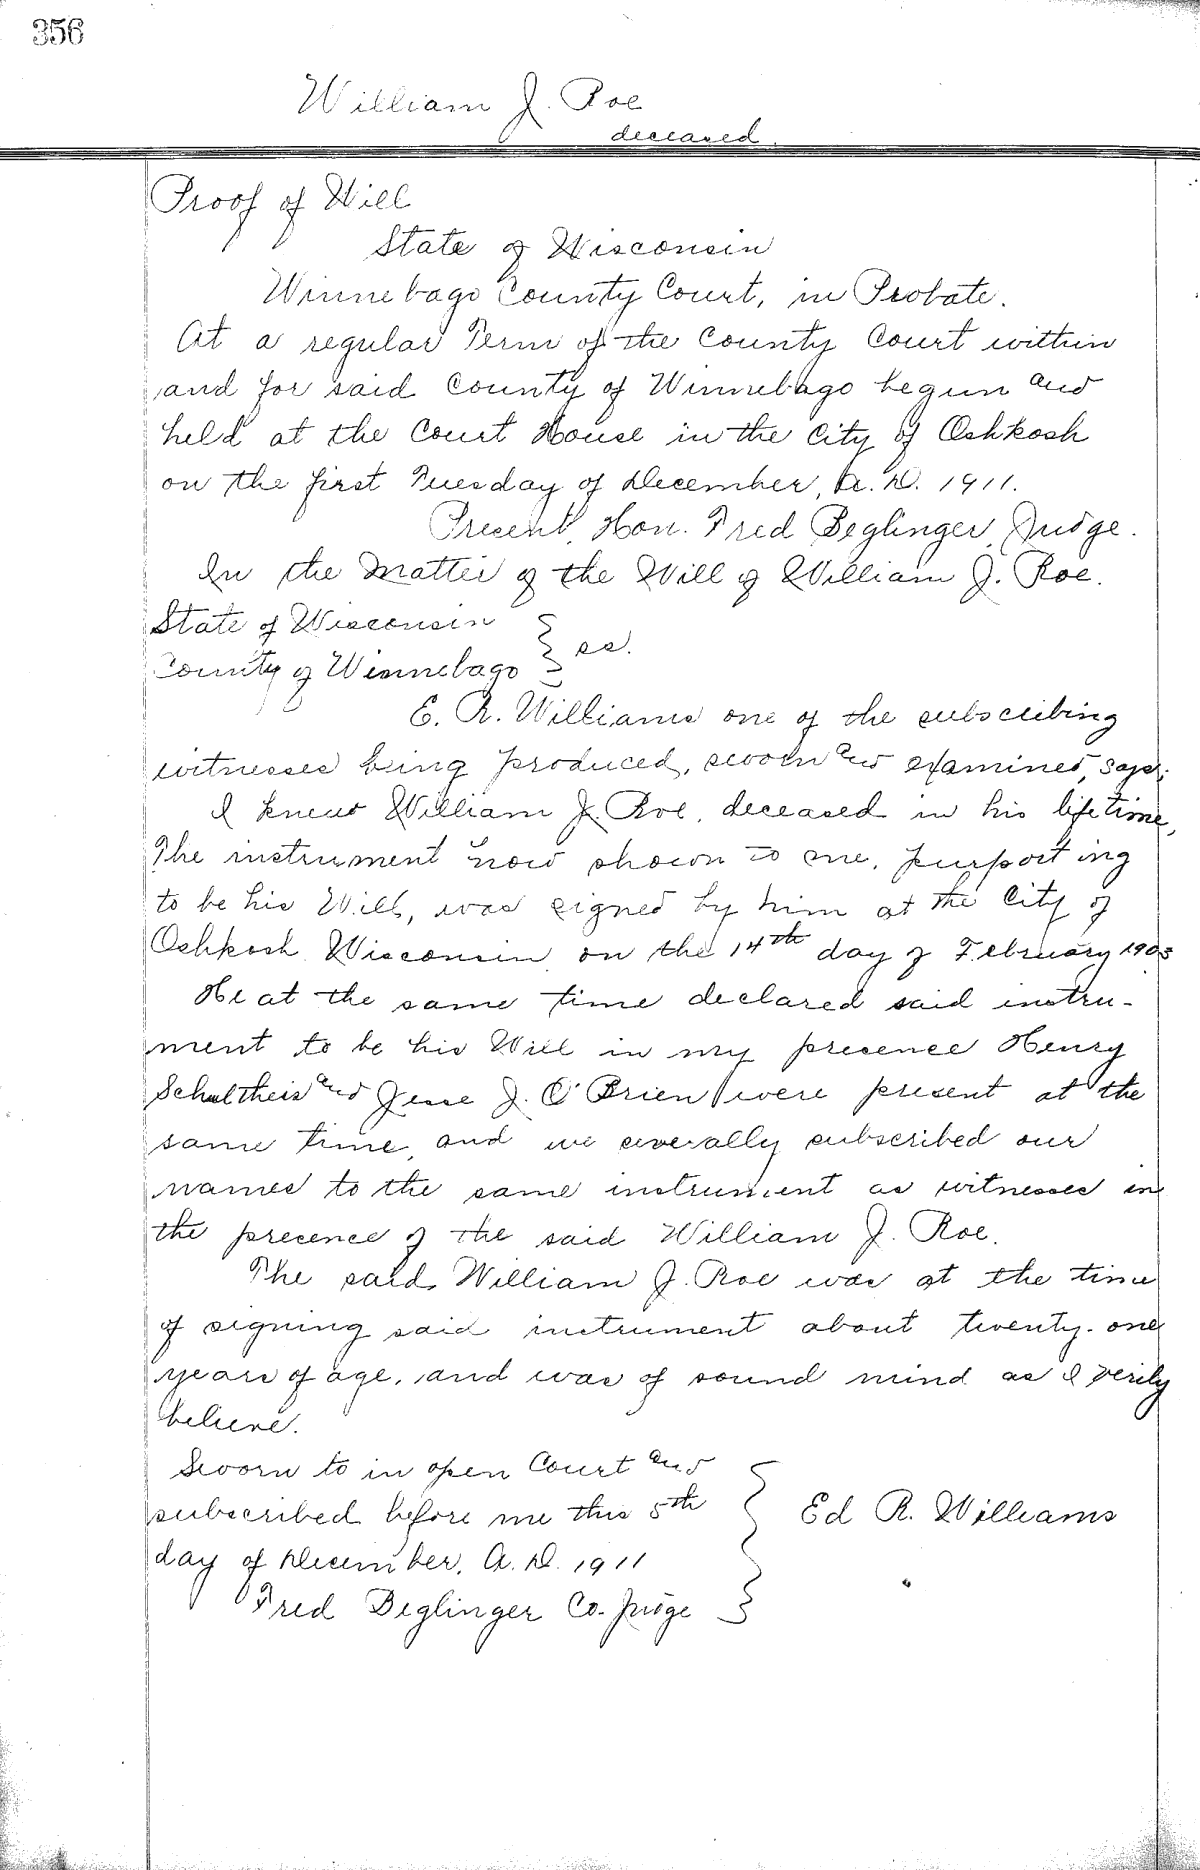 356
William J. Roe
deceased.
Proof of Will
State of Wisconsin
Winnebago County Court, in Probate.
At a regular Term of the County Court within
and for said County of Winnebago begun and
held at the Court House in the City of Oshkosh
on the first Tuesday of December, A.D. 1911.
Present, Hon. Fred Beglinger, Judge.
In the Matter of the Will of William J. Roe.
State of Wisconsin
County of Winnebago } ss.
E. R. Williams one of the subscribing
witnesses being produced, sworn and examined, says;
I knew William J. Roe, deceased in his lifetime,
The instrument now shown to me, purporting
to be his Will, was signed by him at the City of
Oshkosh Wisconsin on the 14th day of February 1905
He at the same time declared said instru-
ment to be his Will in my presence Henry
Schultheis and Jesse J. O'Brien were present at the
same time, and we severally subscribed our
names to the same instrument as witnesses in
the presence of the said William J. Roe.
The said William J. Roe was at the time
of signing said instrument about twenty-one
years of age, and was of sound mind as I verily
believe.
Sworn to in open Court and
subscribed before me this 5th } Ed R. Williams
day of December, A.D. 1911
Fred Beglinger Co. Judge